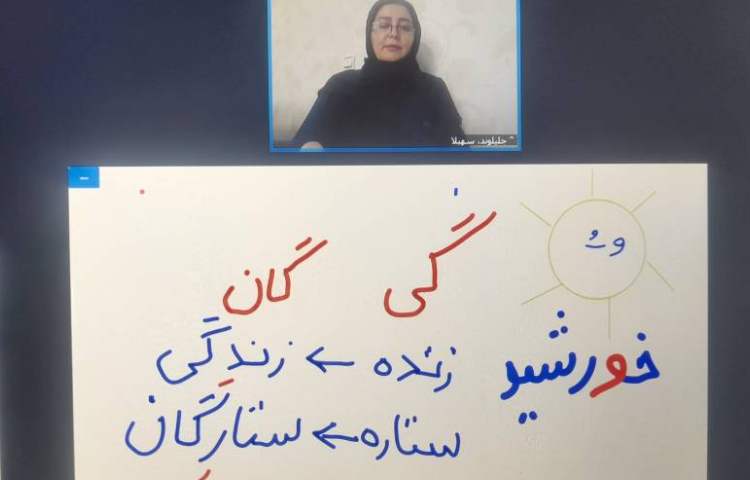 خلیلوند، سهیلا
وـُ
گی گان
خورشید
زنده ← زندگی
ستاره ← ستارگان